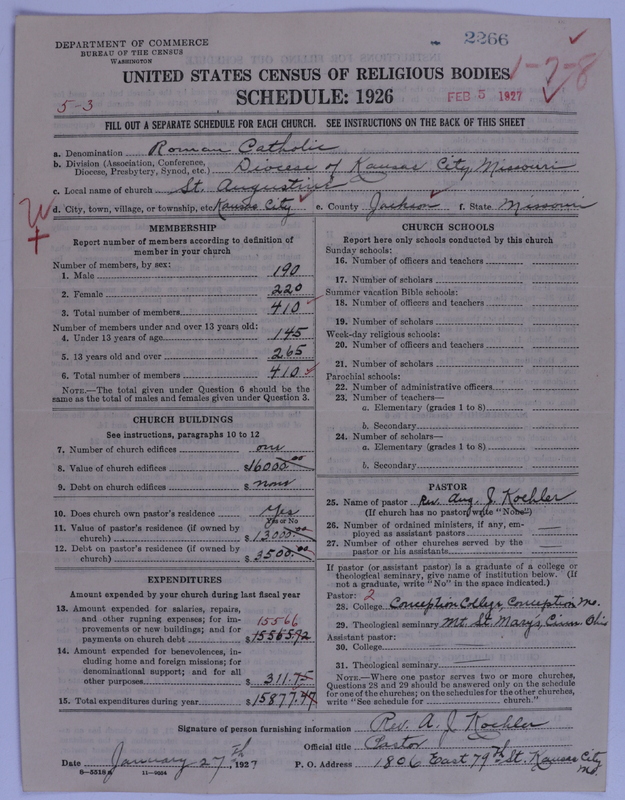 DEPARTMENT OF COMMERCE
BUREAU OF THE CENSUS
WASHINGTON
2266
UNITED STATES CENSUS OF RELIGIOUS BODIES
1-7-8
SCHEDULE: 1926
5-3
FEB 5 1927
FILL OUT A SEPARATE SCHEDULE FOR EACH CHURCH. SEE INSTRUCTIONS ON THE BACK OF THIS SHEET
a. Denomination Roman Catholic
b. Division (Association, Conference, Diocese, Presbytery, Synod, etc.) Diocese of Kansas City, Missouri
c. Local name of church St. Augustine
d. City, town, village, or township, etc. Kansas City e. County Jackson f. State Missouri
MEMBERSHIP
Report number of members according to definition of
member in your church
Number of members, by sex:
1. Male 190
2. Female 220
3. Total number of members 410
Number of members under and over 13 years old:
4. Under 13 years of age 145
5. 13 years old and over 265
6. Total number of members 410
NOTE.—The total given under Question 6 should be
same as the total of males and females given under Question 3.
CHURCH BUILDINGS
See instructions, paragraphs 10 to 12
7. Number of church edifices one
8. Value of church edifices $16000.00
9. Debt on church edifices $ none
10. Does church own pastor's residence Yes
Yes or No
11. Value of pastor's residence (if owned by
church) $13000.00
12. Debt on pastor's residence (if owned by
church) $3500.00
EXPENDITURES
Amount expended by your church during last fiscal year
13. Amount expended for salaries, repairs,
and other running expenses; for im-
provements or new buildings; and for
payments on church debt $15565.92
15566
14. Amount expended for benevolences, in-
cluding home and foreign missions; for
denominational support; and for all
other purposes $311.75
15. Total expenditures during year $15877.47
CHURCH SCHOOLS
Report here only schools conducted by this church
Sunday schools:
16. Number of officers and teachers
17. Number of scholars
Summer vacation Bible schools:
18. Number of officers and teachers
19. Number of scholars
Week-day religious schools:
20. Number of officers and teachers
21. Number of scholars
Parochial schools:
22. Number of administrative officers
23. Number of teachers—
a. Elementary (grades 1 to 8)
b. Secondary
24. Number of scholars—
a. Elementary (grades 1 to 8)
b. Secondary
PASTOR
25. Name of pastor Rev. Aug. J. Koehler
(If church has no pastor, write "None")
26. Number of ordained ministers, if any, em-
ployed as assistant pastors
27. Number of other churches served by the
pastor or his assistants
If pastor (or assistant pastor) is a graduate of a college or
theological seminary, give name of institution below. (If
not a graduate, write "No" in the space indicated.)
Pastor: 2
28. College Conception College, Conception Mo.
29. Theological seminary Mt. St. Mary's, Cinn. Ohio
Assistant pastor:
30. College
31. Theological seminary
NOTE.—Where one pastor serves two or more churches,
Questions 28 and 29 should be answered only on the schedule
for one of the churches; on the schedules for the other churches,
write "See schedule for church."
Signature of person furnishing information Rev. A. J. Koehler
Official title Pastor
Date January 27th, 1927 P. O. Address 1806 East 79th St. Kansas City Mo.
8-5318a 11-9664